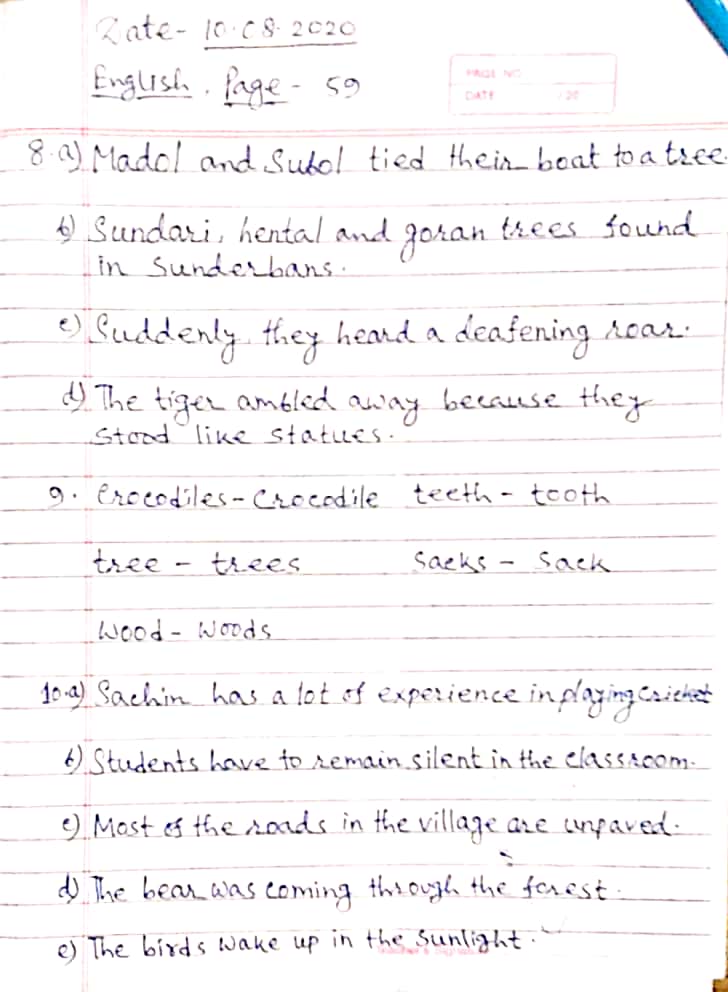 Date- 10.08.2020
English. Page - 59
PAGE NO.
DATE / 20
8.a) Madol and Sutol tied their boat to a tree.
b) Sundari, hental and goran trees found
in Sunderbans.
c) Suddenly they heard a deafening roar.
d) The tiger ambled away because they
stood like statues.
9. Crocodiles - Crocodile teeth - tooth
tree - trees Sacks - Sack
Wood - Woods
10.a) Sachin has a lot of experience in playing cricket
b) Students have to remain silent in the classroom.
c) Most of the roads in the village are unpaved.
d) The bear was coming through the forest.
e) The birds wake up in the Sunlight.